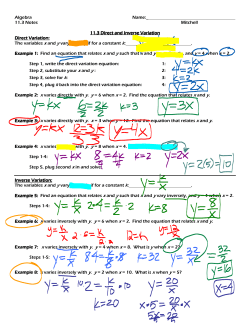 Algebra Name:
11.3 Notes Mitchell
11.3 Direct and Inverse Variation
Direct Variation:
The variables x and y vary for a constant k:
Example 1: Find an equation that relates x and y such that x and y and y = 4 when x = 2.
Step 1, write the direct variation equation: 1: y = kx
Step 2, substitute your x and y: 2: 4 = 2k
Step 3, solve for k: 3: k = 2
Step 4, plug k back into the direct variation equation: 4: y = 2x
Example 2: y varies directly with x. y = 6 when x = 2. Find the equation that relates x and y.
y = kx 6 = 2k k = 3 y = 3x
Example 3: y varies directly with x.
y = kx y = 4x
Example 4: x varies directly with y. y = 8 when x = 4.
Steps 1-4: y = kx 8 = 4k k = 2 y = 2x
Step 5, plug second x in and solve: y = 2(5) = 10
Inverse Variation:
The variables x and y vary if for a constant k: y = k/x
Example 5: Find an equation that relates x and y such that x and y vary inversely, and y = 4 when x = 2.
Steps 1-4: y = k/x 2·4 = k/2·2 k = 8 y = 8/x
Example 6: y varies inversely with x. y = 6 when x = 2. Find the equation that relates x and y.
y = k/x 2·6 = k/2·2 12 = k y = 12/x
Example 7: y varies inversely with x. y = 4 when x = 8. What is y when x = 2?
Steps 1-5: y = k/x 8·4 = k/8·8 k = 32 y = 32/x y = 32/2
y = 16
Example 8: y varies inversely with x. y = 2 when x = 10. What is x when y = 5?
y = k/x 10·2 = k/10·10 y = 20/x x = 4
k = 20 x·5 = 20/x·x
5x = 20